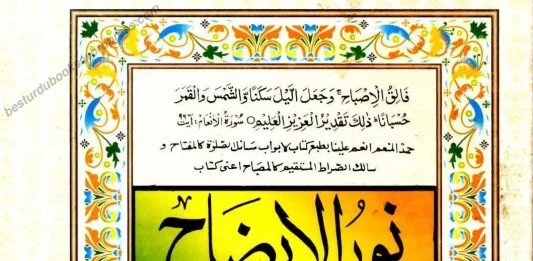 besturdubooks
فَالِقُ الْاِصْبَاحِ ۚ وَجَعَلَ الَّيْلَ سَكَنًا وَّالشَّمْسَ وَالْقَمَرَ
حُسْبَانًا ؕ ذٰلِكَ تَقْدِيْرُ الْعَزِيْزِ الْعَلِيْمِ ○ سُوْرَةُ الْاَنْعَامِ : آيت
حمدًا لمنعم انعم علينا بطبع كتاب لابواب مسائل الصلوٰة كالمفتاح و
سالك الصراط المستقيم كالمصباح اعنى كتاب
نور الايضاح